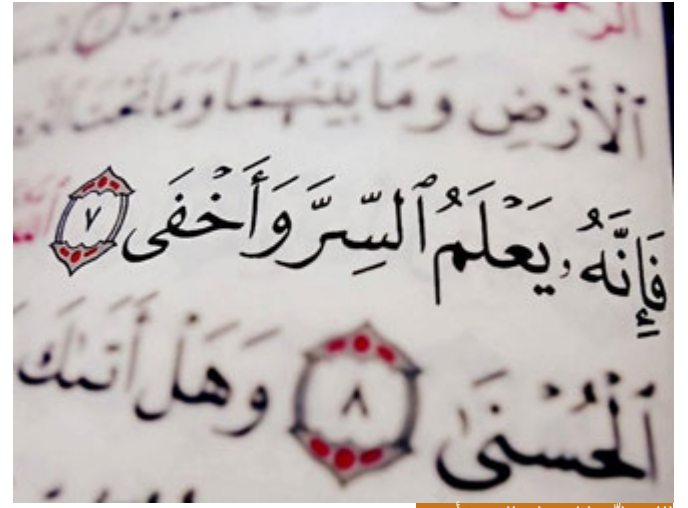 ٱلْأَرْضِ وَمَا بَيْنَهُمَا وَمَا تَحْتَ
فَإِنَّهُۥ يَعْلَمُ ٱلسِّرَّ وَأَخْفَى ٧
ٱلْحُسْنَىٰ ٨ وَهَلْ أَتَىٰكَ